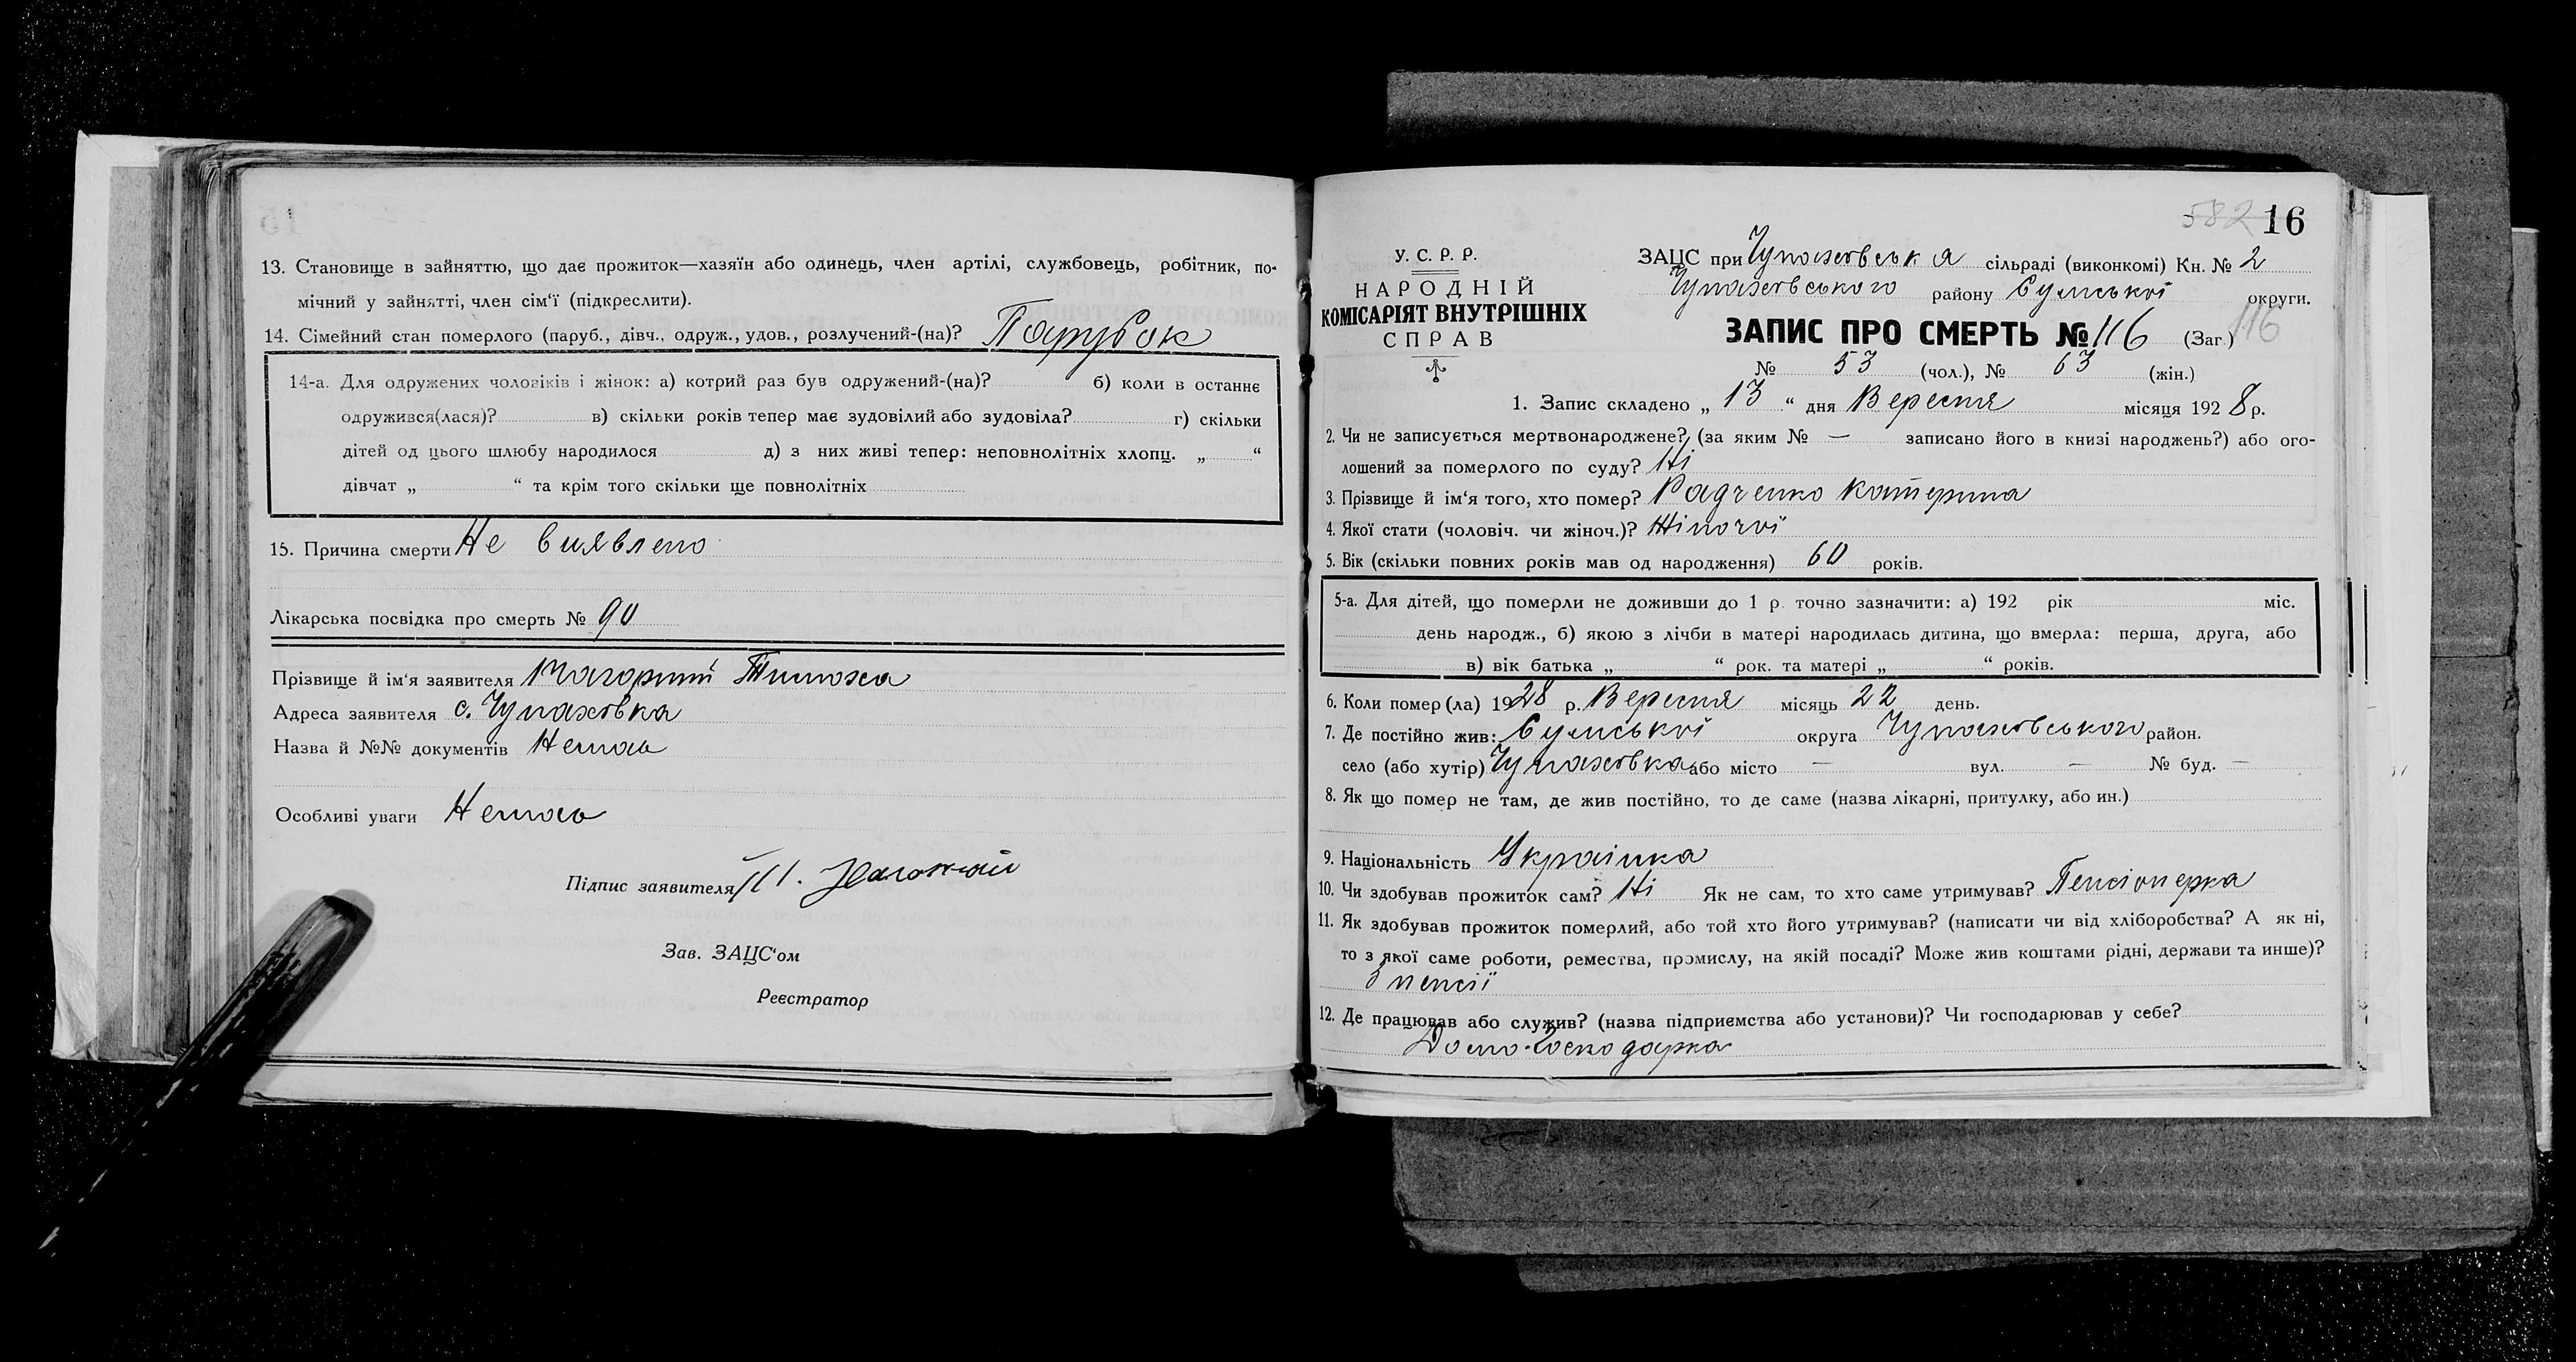 13. Становище в зайняттю, що дає прожиток—хазяїн або одинець, член артілі, службовець, робітник, по-
мічний у зайнятті, член сім'ї (підкреслити).
14. Сімейний стан померлого (паруб., дівч., одруж., удов., розлучений-(на)? Парубок
14-а. Для одружених чоловіків і жінок: а) котрий раз був одружений-(на)? б) коли в останнє
одружився(лася)? в) скільки років тепер має зудовілий або зудовіла? г) скільки
дітей од цього шлюбу народилося д) з них живі тепер: неповнолітніх хлопц. „ “
дівчат „ “ та крім того скільки ще повнолітніх
15. Причина смерти Не виявлено
Лікарська посвідка про смерть № 90
Прізвище й ім'я заявителя
Адреса заявителя с. Чупахівка
Назва й №№ документів Немає
Особливі уваги Немає
Підпис заявителя
Зав. ЗАЦС'ом
Реєстратор
582 16
У. С. Р. Р.
НАРОДНІЙ
КОМІСАРІЯТ ВНУТРІШНІХ
СПРАВ
ЗАЦС при Чупахівськ я сільраді (виконкомі) Кн. № 2
Чупахівського району Сумської округи.
ЗАПИС ПРО СМЕРТЬ № 116 (Заг.) 116
№ 53 (чол.), № 63 (жін.)
1. Запис складено „ 13 “ дня Вересня місяця 1928 р.
2. Чи не записується мертвонароджене? (за яким № — записано його в книзі народжень?) або ого-
лошений за померлого по суду? Ні
3. Прізвище й ім'я того, хто помер? Радченко Катерина
4. Якої стати (чоловіч. чи жіноч.)? Жіночої
5. Вік (скільки повних років мав од народження) 60 років.
5-а. Для дітей, що померли не доживши до 1 р. точно зазначити: а) 192 рік міс.
день народж., б) якою з лічби в матері народилась дитина, що вмерла: перша, друга, або
в) вік батька „ “ рок. та матері „ “ років.
6. Коли помер (ла) 1928 р. Вересня місяць 22 день.
7. Де постійно жив: Сумської округа Чупахівського район.
село (або хутір) Чупахівка або місто — вул. — № буд. —
8. Як що помер не там, де жив постійно, то де саме (назва лікарні, притулку, або ин.)
9. Національність Українка
10. Чи здобував прожиток сам? Ні Як не сам, то хто саме утримував? Пенсіонерка
11. Як здобував прожиток померлий, або той хто його утримував? (написати чи від хліборобства? А як ні,
то з якої саме роботи, ремества, промислу, на якій посаді? Може жив коштами рідні, держави та инше)?
З пенсії
12. Де працював або служив? (назва підприємства або установи)? Чи господарював у себе?
Домо-Господарка